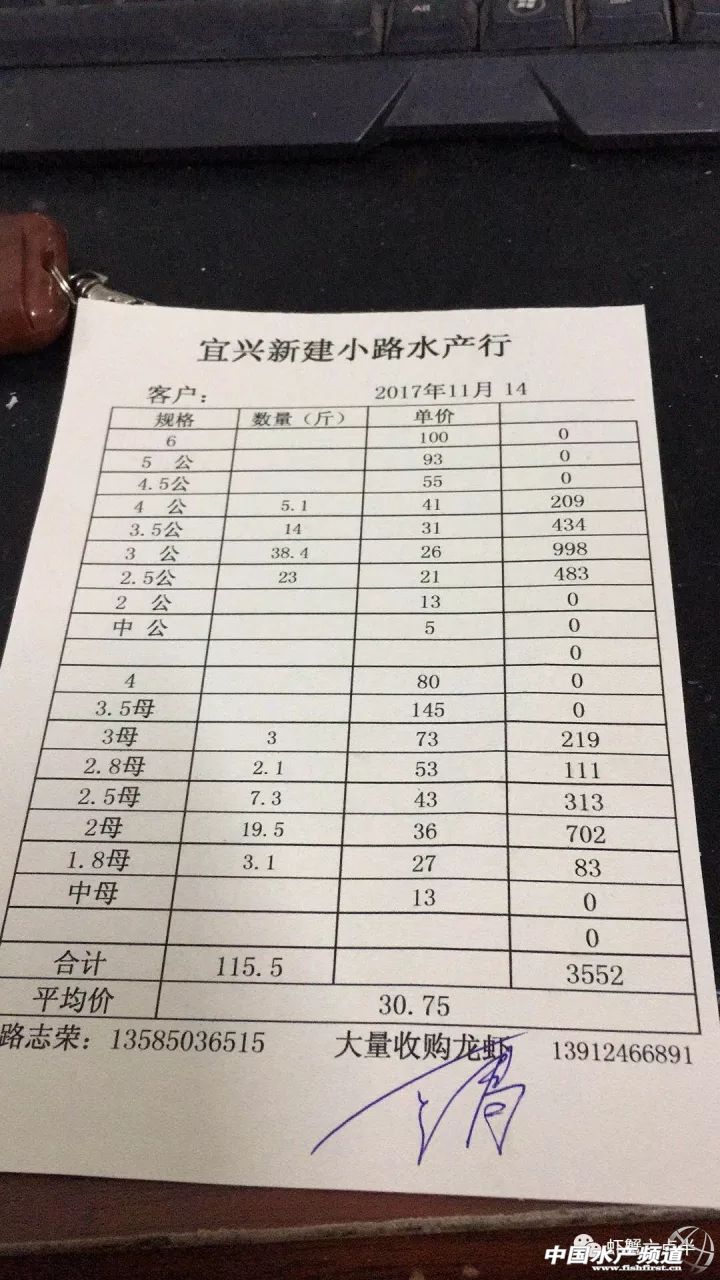 宜兴新建小路水产行
客户： 2017年11月 14
规格 数量（斤） 单价
6 100 0
5 公 93 0
4.5公 55 0
4 公 5.1 41 209
3.5公 14 31 434
3 公 38.4 26 998
2.5公 23 21 483
2 公 13 0
中 公 5 0
0
4 80 0
3.5母 145 0
3母 3 73 219
2.8母 2.1 53 111
2.5母 7.3 43 313
2母 19.5 36 702
1.8母 3.1 27 83
中母 13 0
0
合计 115.5 3552
平均价 30.75
路志荣：13585036515 大量收购龙虾 13912466891
虾蟹六点半
中国水产频道
www.fishfirst.cn